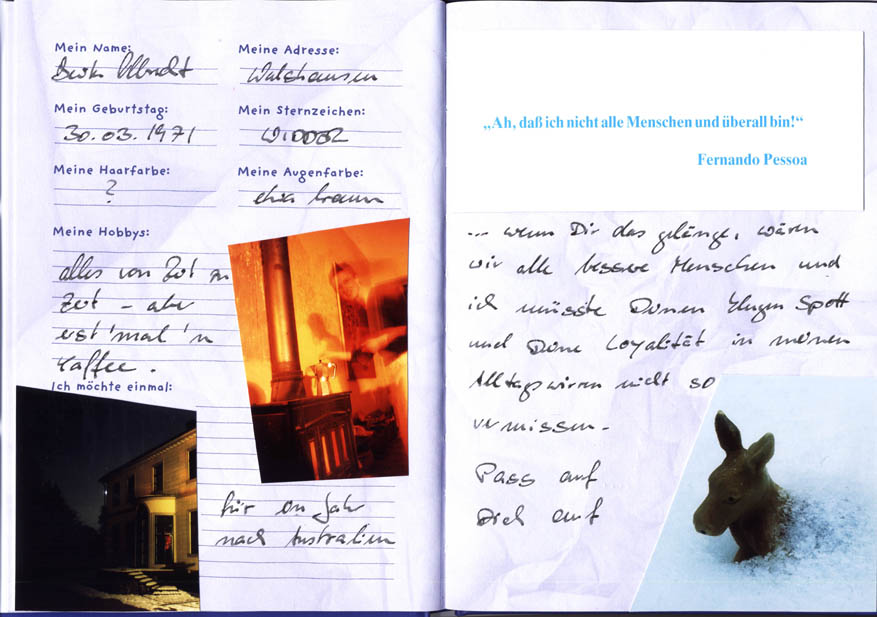 Mein Name:
Albrecht
Meine Adresse:
Walshausen
Mein Geburtstag:
30.03.1971
Mein Sternzeichen:
WIDDER
Meine Haarfarbe:
?
Meine Augenfarbe:
braun
Meine Hobbys:
alles von Zeit zu
Zeit – aber
erst 'mal 'n
Kaffee.
Ich möchte einmal:
für ein Jahr
nach Australien
„Ah, daß ich nicht alle Menschen und überall bin!“
Fernando Pessoa
... wenn Dir das gelänge, wären
wir alle bessere Menschen und
ich müsste Deinen klugen Spott
und Deine Loyalität in meinen
Alltagswirren nicht so
vermissen.
Pass auf
Dich auf